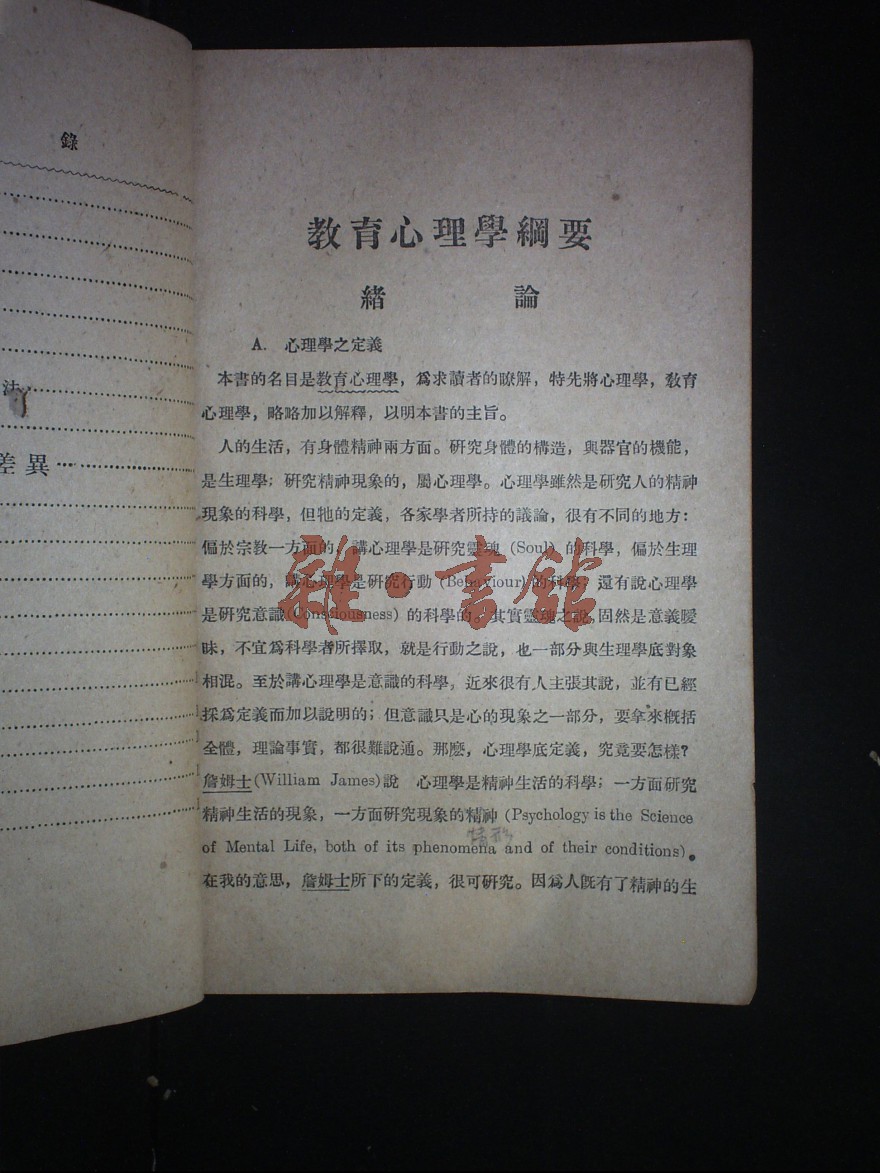 錄
法
差異
教育心理學綱要
緒論
A. 心理學之定義
本書的名目是教育心理學，爲求讀者的瞭解，特先將心理學，教育
心理學，略略加以解釋，以明本書的主旨。
人的生活，有身體精神兩方面。研究身體的構造，與器官的機能，
是生理學；研究精神現象的，屬心理學。心理學雖然是研究人的精神
現象的科學，但牠的定義，各家學者所持的議論，很有不同的地方：
偏於宗教一方面的，講心理學是研究靈魂 (Soul) 的科學，偏於生理
學方面的，講心理學是研究行動 (Behaviour) 的科學；還有說心理學
是研究意識 (Consciousness) 的科學的。其實靈魂之說，固然是意義曖
昧，不宜爲科學者所擇取，就是行動之說，也一部分與生理學底對象
相混。至於講心理學是意識的科學，近來很有人主張其說，並有已經
採爲定義而加以說明的；但意識只是心的現象之一部分，要拿來概括
全體，理論事實，都很難說通。那麽，心理學底定義，究竟要怎樣？
詹姆士 (William James) 說 心理學是精神生活的科學；一方面研究
精神生活的現象，一方面研究現象的精神 (Psychology is the Science
of Mental Life, both of its phenomena and of their conditions)。
在我的意思，詹姆士所下的定義，很可研究。因爲人旣有了精神的生
雜·書館